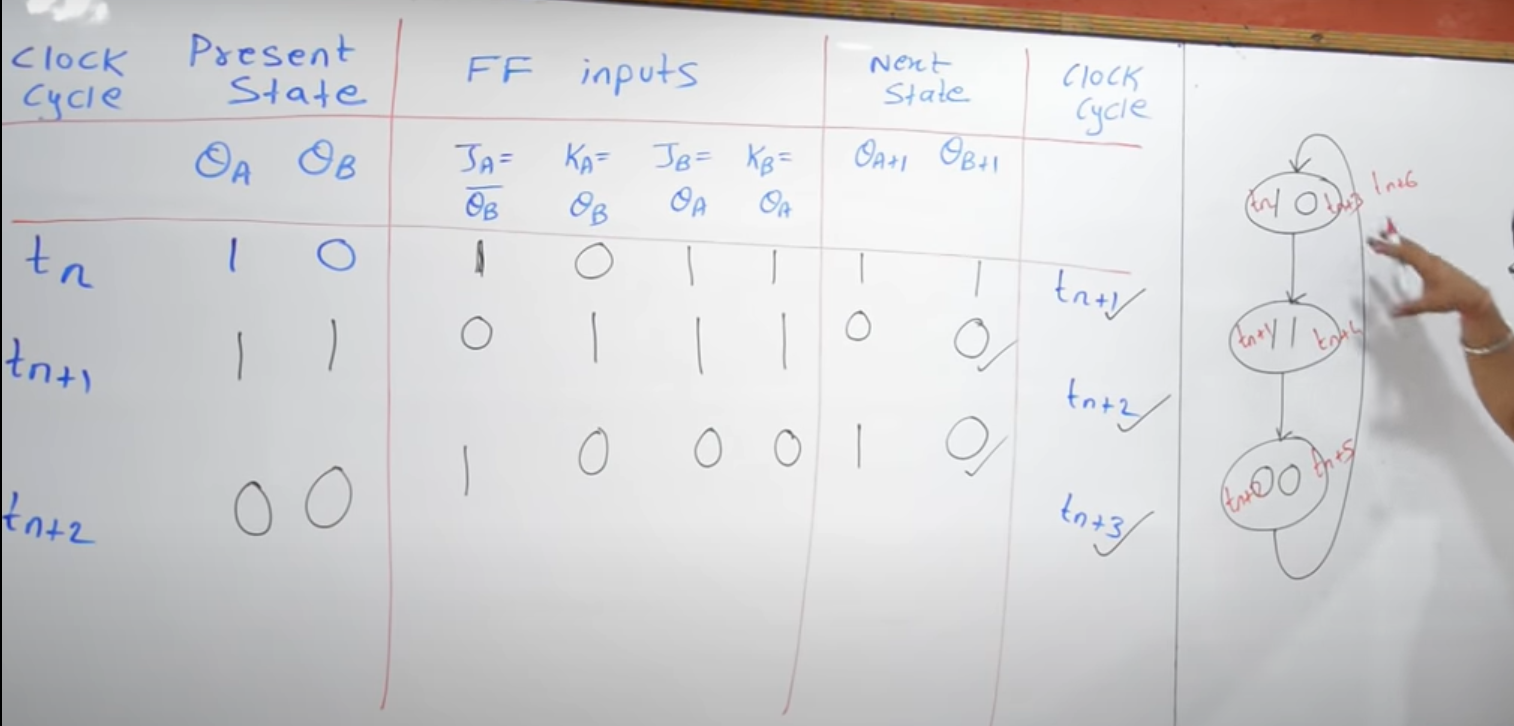 Clock Cycle Present State FF inputs Next State Clock Cycle
θA θB JA= θB̅ KA= θB JB= θA KB= θA θA+1 θB+1
tn 1 0 1 0 1 1 1 1 tn+1✓
tn+1 1 1 0 1 1 1 0 0✓ tn+2✓
tn+2 0 0 1 0 0 0 1 0✓ tn+3✓
tn 10 tn+3 tn+6
tn+1 11 tn+4
tn+2 00 tn+5